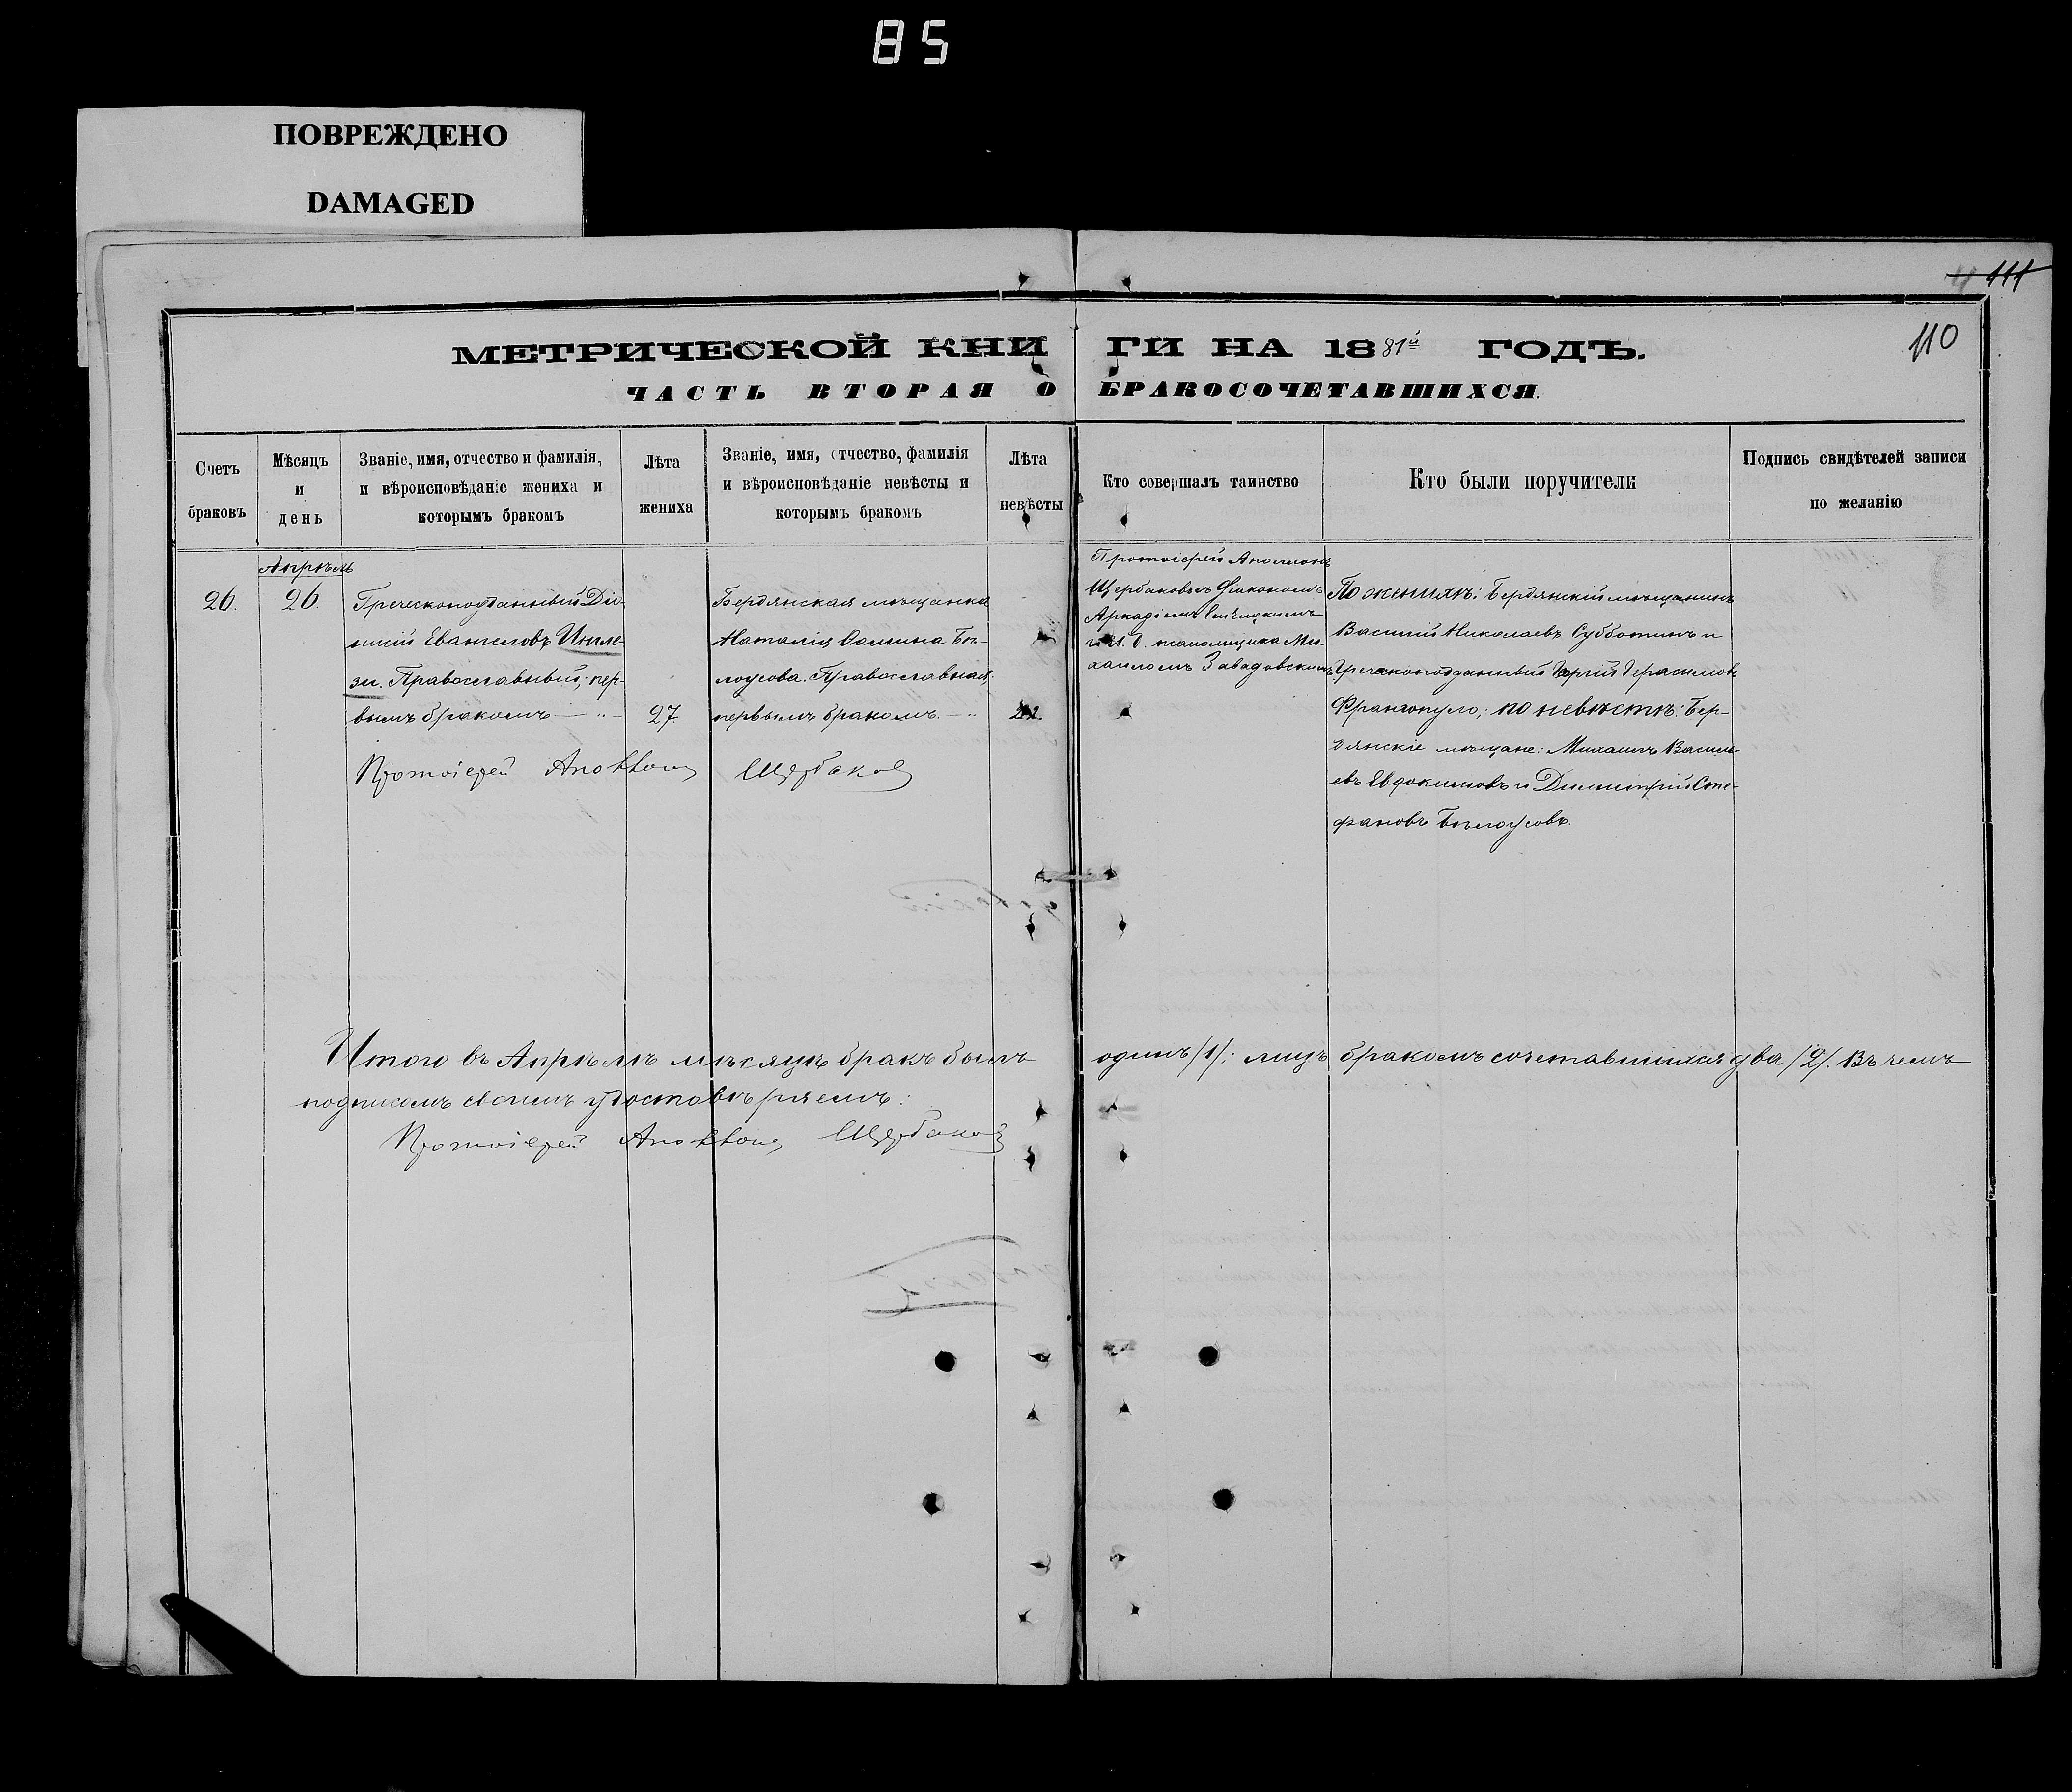 85
ПОВРЕЖДЕНО
DAMAGED
111
110
МЕТРИЧЕСКОЙ КНИГИ НА 1881й ГОДЪ.
ЧАСТЬ ВТОРАЯ О БРАКОСОЧЕТАВШИХСЯ.
Счетъ
браковъ
Мѣсяцъ
и
день
Званіе, имя, отчество и фамилія,
и вѣроисповѣданіе жениха и
которымъ бракомъ
Лѣта
жениха
Званіе, имя, отчество, фамилія
и вѣроисповѣданіе невѣсты и
которымъ бракомъ
Лѣта
невѣсты
Кто совершалъ таинство
Кто были поручители
Подпись свидѣтелей записи
по желанію
26.
Апрѣль
26.
Греческоподданный Діо-
нисій Евангеловъ Ингле-
зи. Православный; пер-
вымъ бракомъ — „ —
27.
Бердянская мѣщанка
Наталія Бѣ-
лоусова. Православная;
первымъ бракомъ. — „
22.
Протоіерей Аполлонъ
Щербаковъ съ діакономъ
Аркадіемъ
и И. д. псаломщика Ми-
хаиломъ Завадовскимъ
По женихѣ: Бердянскій мѣщанинъ
Василій Николаевъ Субботинъ и
Греческоподданный Георгій Герасимовъ
Франгопуло; по невѣстѣ: Бер-
дянскіе мѣщане: Михаилъ Василь-
евъ Евдокимовъ и Димитрій Сте-
фановъ Бѣлоусовъ.
Протоіерей Аполлонъ Щербаковъ
Итого въ Апрѣлѣ мѣсяцѣ бракъ былъ одинъ /1/; лицъ бракомъ сочетавшихся два /2/. Въ чемъ
подписомъ своимъ удостовѣряемъ:
Протоіерей Аполлонъ Щербаковъ